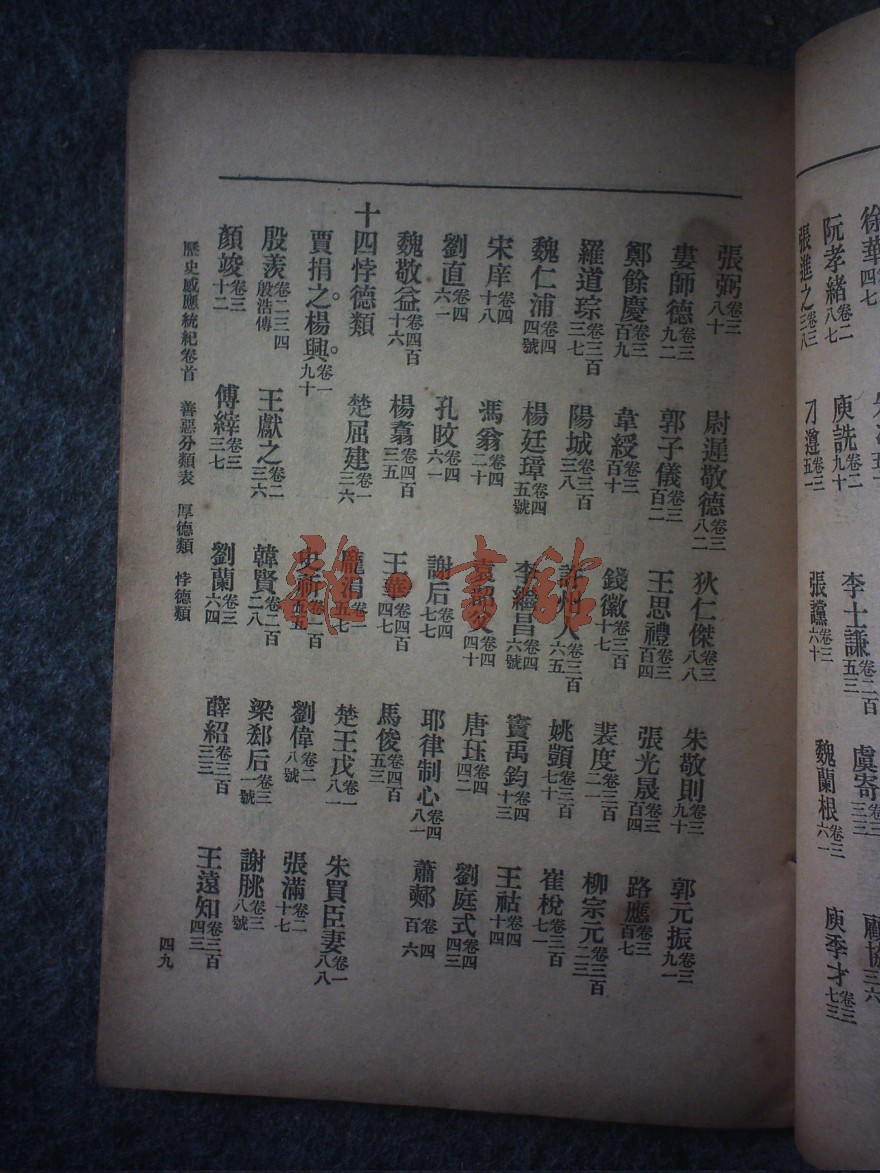 徐華四七 顧協三六
阮孝緒卷二八七 庾詵卷二九十 李士謙卷二百五三 虞寄卷三三三
張進之卷三三八 刁遵卷三五一 張讜卷三六十 魏蘭根卷三六一 庾季才卷三七三
張弼卷三八十 尉遲敬德卷三八二 狄仁傑卷三八八 朱敬則卷三九十 郭元振卷三九一
婁師德卷三九二 郭子儀卷三百二 王思禮卷三百四 張光晟卷三百四 路應卷三百七
鄭餘慶卷三百九 韋綬卷三百十 錢徽卷三百十七 裴度卷三百二一 柳宗元卷三百二三
羅道琮卷三百三七 陽城卷三百三八 州人卷三百六五 姚顗卷三百七十 崔梲卷三百七一
魏仁浦卷四四號 楊廷璋卷四五號 李繼昌卷四六號 竇禹鈞卷四十三 王祜卷四十四
宋庠卷四十八 馮翁卷四二十 袁韶父卷四四十 唐珏卷四四二 劉庭式卷四四三
劉直卷四六一 孔旼卷四六一 謝后卷四七七 耶律制心卷四八一 蕭䣭卷四百六
魏敬益卷四百十六 楊翥卷四百三五 王華卷四百四七 馬俊卷四百五三
十四悖德類 楚屈建卷一三六 龐涓卷一五七 楚王戊卷一八一 朱買臣妻卷一八八
賈捐之。楊興。卷一九十 卷一百五五 劉偉卷二八號 張滿卷二十七
殷羨卷二三四殷浩傳 王獻之卷二三六 韓賢卷二百二八 梁郗后卷三一號 謝朓卷三八號
顏竣卷三十二 傅縡卷三三七 劉蘭卷三六四 薛紹卷三百三三 王遠知卷三百四三
歷史感應統紀卷首 善惡分類表 厚德類 悖德類 四九
雜·書館